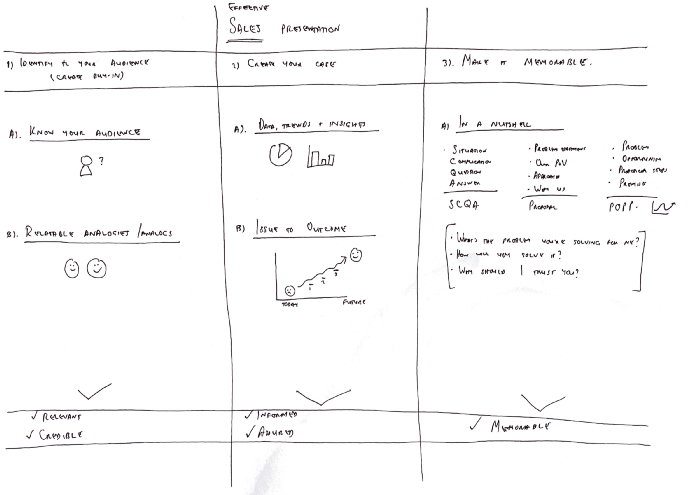 EFFECTIVE
SALES PRESENTATION
1) IDENTIFY to YOUR AUDIENCE
(CREATE BUY-IN)
2) CREATE YOUR CASE
3). MAKE IT MEMORABLE.
A). KNOW YOUR AUDIENCE
?
B). RELATABLE ANALOGIES / ANALOGS
A). DATA, TRENDS + INSIGHTS
B) ISSUE TO OUTCOME
1
2
3
TODAY
FUTURE
A) IN A NUTSHELL
· SITUATION
COMPLICATION
QUESTION
ANSWER
SCQA
· PROBLEM STATEMENT
· OUR PoV
· APPROACH
· WHY US
PROPOSAL
· PROBLEM
· OPPORTUNITIES
· PROGRESS
· PROMISE
POPP.
· WHAT'S THE PROBLEM YOU'RE SOLVING FOR ME?
· HOW WILL YOU SOLVE IT?
· WHY SHOULD I TRUST YOU?
✓ RELEVANT
✓ CREDIBLE
✓ INFORMED
✓ MEMORABLE